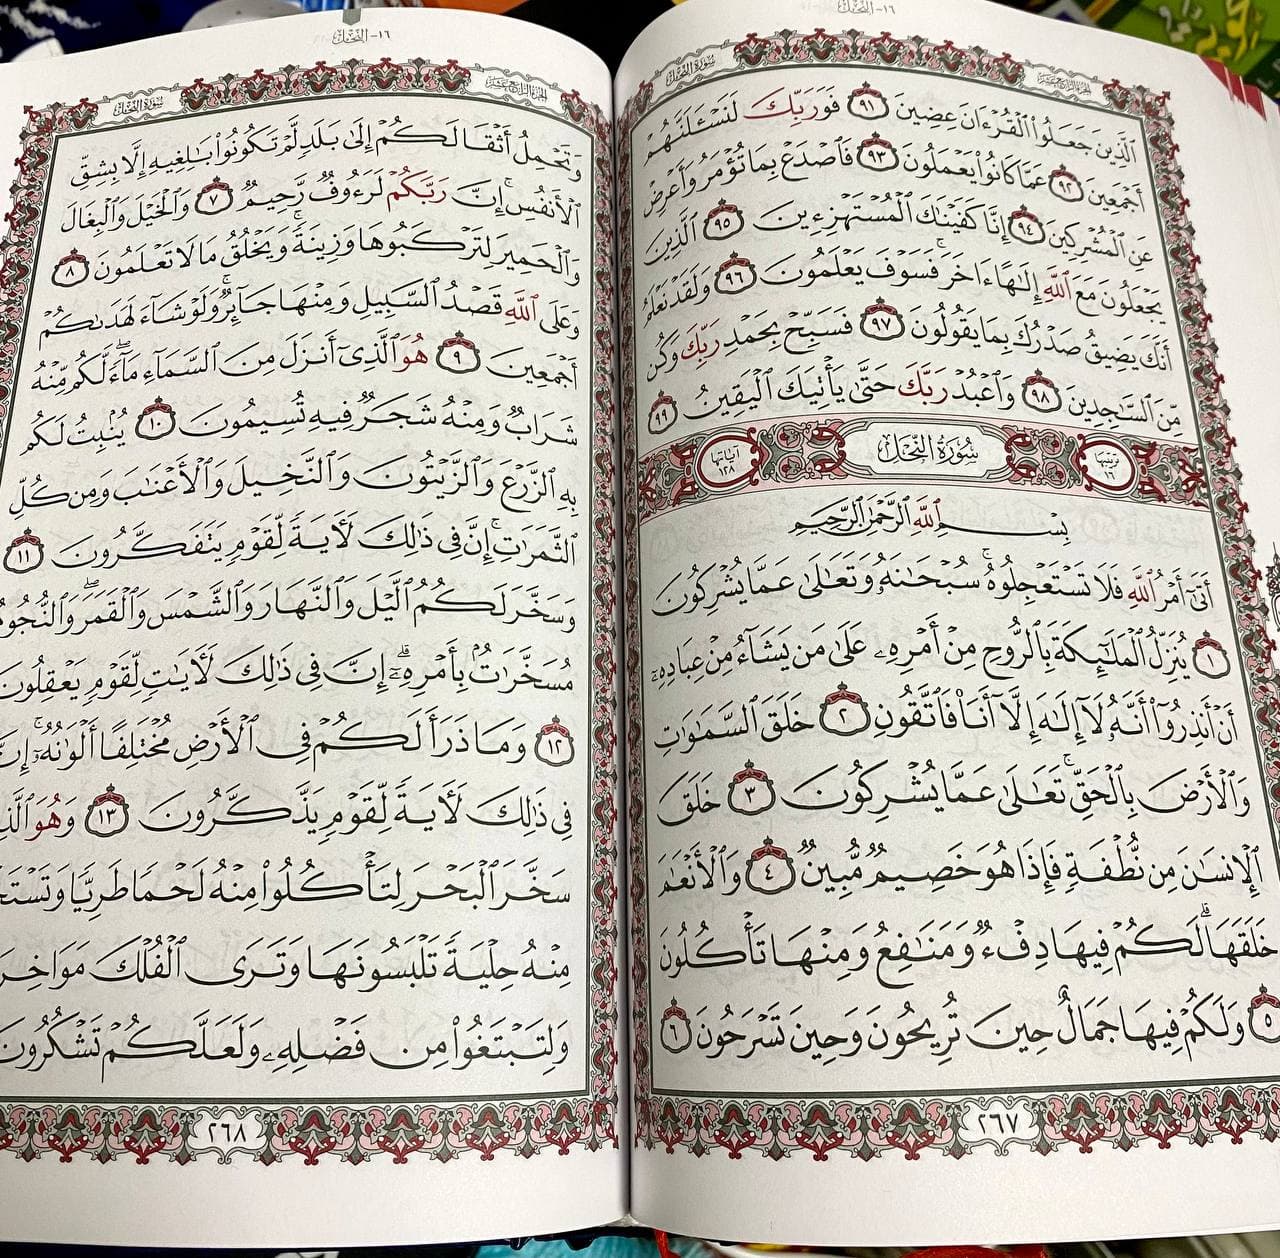 ١٦- النحل
سورة النحل
الجزء الرابع عشر
الَّذِينَ جَعَلُوا۟ الْقُرْءَانَ عِضِينَ ٩١ فَوَرَبِّكَ لَنَسْـَٔلَنَّهُمْ
أَجْمَعِينَ ٩٢ عَمَّا كَانُوا۟ يَعْمَلُونَ ٩٣ فَاصْدَعْ بِمَا تُؤْمَرُ وَأَعْرِضْ
عَنِ الْمُشْرِكِينَ ٩٤ إِنَّا كَفَيْنَٰكَ الْمُسْتَهْزِءِينَ ٩٥ الَّذِينَ
يَجْعَلُونَ مَعَ اللَّهِ إِلَٰهًا ءَاخَرَ ۚ فَسَوْفَ يَعْلَمُونَ ٩٦ وَلَقَدْ نَعْلَمُ
أَنَّكَ يَضِيقُ صَدْرُكَ بِمَا يَقُولُونَ ٩٧ فَسَبِّحْ بِحَمْدِ رَبِّكَ وَكُن
مِّنَ السَّٰجِدِينَ ٩٨ وَاعْبُدْ رَبَّكَ حَتَّىٰ يَأْتِيَكَ الْيَقِينُ ٩٩
ترتيبها ١٦ سُورَةُ النَّحْلِ آياتها ١٢٨
بِسْمِ اللَّهِ الرَّحْمَٰنِ الرَّحِيمِ
أَتَىٰٓ أَمْرُ اللَّهِ فَلَا تَسْتَعْجِلُوهُ ۚ سُبْحَٰنَهُۥ وَتَعَٰلَىٰ عَمَّا يُشْرِكُونَ
١ يُنَزِّلُ الْمَلَٰٓئِكَةَ بِالرُّوحِ مِنْ أَمْرِهِۦ عَلَىٰ مَن يَشَآءُ مِنْ عِبَادِهِۦٓ
أَنْ أَنذِرُوٓا۟ أَنَّهُۥ لَآ إِلَٰهَ إِلَّآ أَنَا۠ فَاتَّقُونِ ٢ خَلَقَ السَّمَٰوَٰتِ
وَالْأَرْضَ بِالْحَقِّ ۚ تَعَٰلَىٰ عَمَّا يُشْرِكُونَ ٣ خَلَقَ
الْإِنسَٰنَ مِن نُّطْفَةٍ فَإِذَا هُوَ خَصِيمٌ مُّبِينٌ ٤ وَالْأَنْعَٰمَ
خَلَقَهَا ۗ لَكُمْ فِيهَا دِفْءٌ وَمَنَٰفِعُ وَمِنْهَا تَأْكُلُونَ
٥ وَلَكُمْ فِيهَا جَمَالٌ حِينَ تُرِيحُونَ وَحِينَ تَسْرَحُونَ ٦
٢٦٧
١٦- النحل
سورة النحل
الجزء الرابع عشر
وَتَحْمِلُ أَثْقَالَكُمْ إِلَىٰ بَلَدٍ لَّمْ تَكُونُوا۟ بَٰلِغِيهِ إِلَّا بِشِقِّ
الْأَنفُسِ ۚ إِنَّ رَبَّكُمْ لَرَءُوفٌ رَّحِيمٌ ٧ وَالْخَيْلَ وَالْبِغَالَ
وَالْحَمِيرَ لِتَرْكَبُوهَا وَزِينَةً ۚ وَيَخْلُقُ مَا لَا تَعْلَمُونَ ٨
وَعَلَى اللَّهِ قَصْدُ السَّبِيلِ وَمِنْهَا جَآئِرٌ ۚ وَلَوْ شَآءَ لَهَدَىٰكُمْ
أَجْمَعِينَ ٩ هُوَ الَّذِىٓ أَنزَلَ مِنَ السَّمَآءِ مَآءً ۖ لَّكُم مِّنْهُ
شَرَابٌ وَمِنْهُ شَجَرٌ فِيهِ تُسِيمُونَ ١٠ يُنۢبِتُ لَكُم
بِهِ الزَّرْعَ وَالزَّيْتُونَ وَالنَّخِيلَ وَالْأَعْنَٰبَ وَمِن كُلِّ
الثَّمَرَٰتِ ۗ إِنَّ فِى ذَٰلِكَ لَءَايَةً لِّقَوْمٍ يَتَفَكَّرُونَ ١١
وَسَخَّرَ لَكُمُ الَّيْلَ وَالنَّهَارَ وَالشَّمْسَ وَالْقَمَرَ ۖ وَالنُّجُومُ
مُسَخَّرَٰتٌۢ بِأَمْرِهِۦٓ ۗ إِنَّ فِى ذَٰلِكَ لَءَايَٰتٍ لِّقَوْمٍ يَعْقِلُونَ
١٢ وَمَا ذَرَأَ لَكُمْ فِى الْأَرْضِ مُخْتَلِفًا أَلْوَٰنُهُۥٓ ۗ إِنَّ
فِى ذَٰلِكَ لَءَايَةً لِّقَوْمٍ يَذَّكَّرُونَ ١٣ وَهُوَ
سَخَّرَ الْبَحْرَ لِتَأْكُلُوا۟ مِنْهُ لَحْمًا طَرِيًّا
مِنْهُ حِلْيَةً تَلْبَسُونَهَا وَتَرَى الْفُلْكَ مَوَاخِرَ
وَلِتَبْتَغُوا۟ مِن فَضْلِهِۦ وَلَعَلَّكُمْ تَشْكُرُونَ
٢٦٨